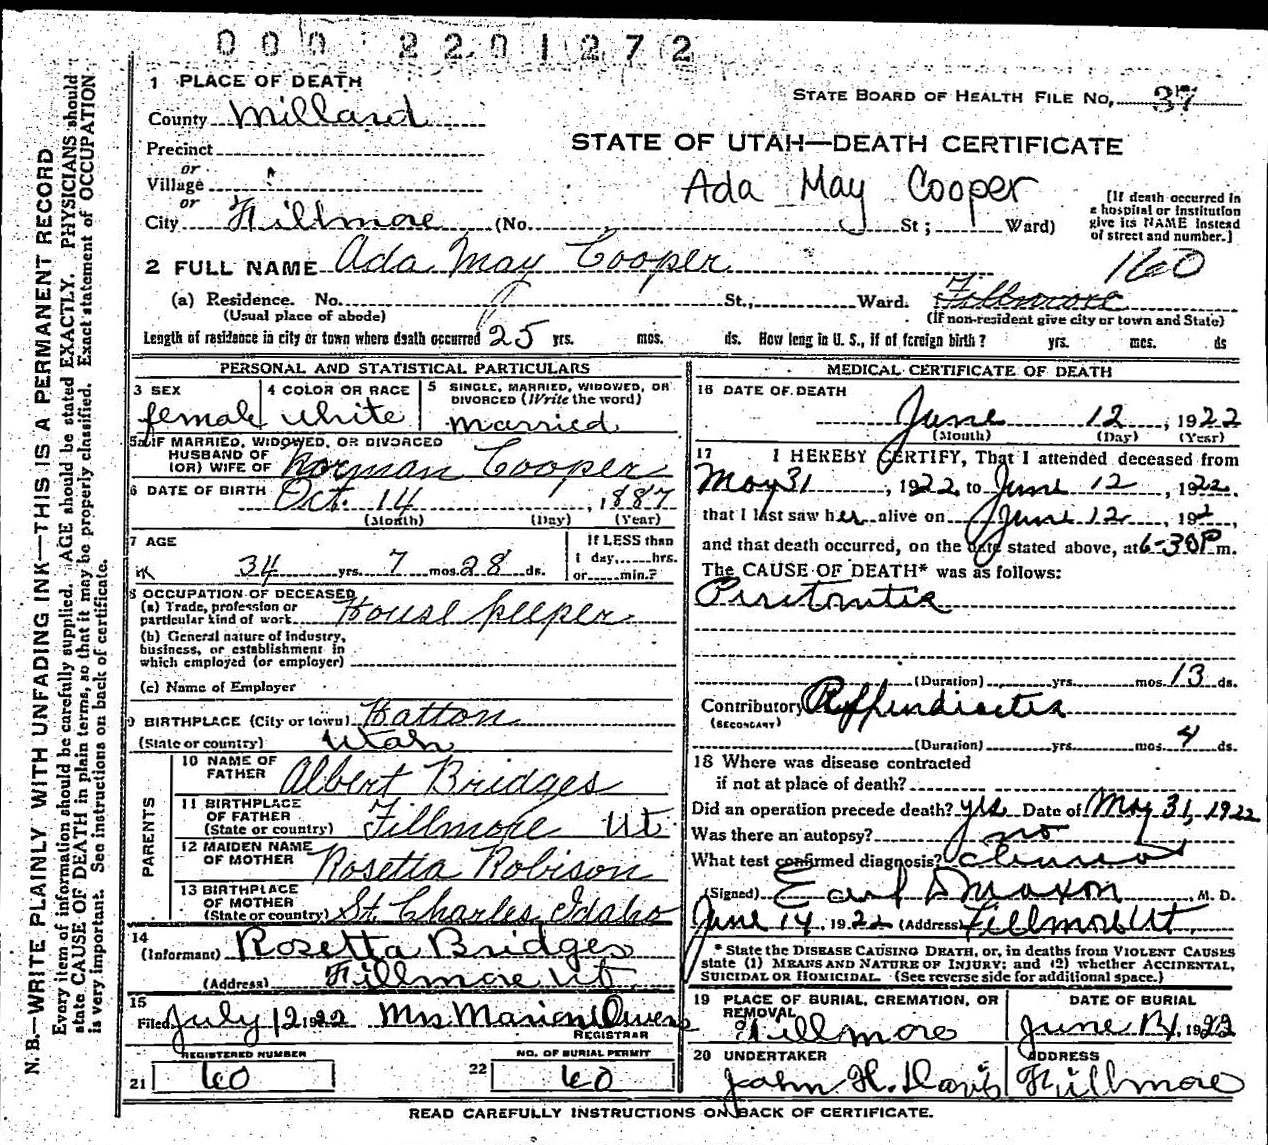 000 2201272
1 PLACE OF DEATH
STATE BOARD OF HEALTH FILE No, 37
County Millard
STATE OF UTAH—DEATH CERTIFICATE
Precinct
or
Village
Ada May Cooper
or
City Fillmore (No. St; Ward)
[If death occurred in
a hospital or institution
give its NAME instead
of street and number.]
2 FULL NAME Ada May Cooper
160
(a) Residence. No. St., Ward. Fillmore
(Usual place of abode) (If non-resident give city or town and State)
Length of residence in city or town where death occurred 25 yrs. mos. ds. How long in U. S., if of foreign birth? yrs. mos. ds
PERSONAL AND STATISTICAL PARTICULARS
3 SEX
female
4 COLOR OR RACE
white
5 SINGLE, MARRIED, WIDOWED, OR
DIVORCED (Write the word)
married
5a IF MARRIED, WIDOWED, OR DIVORCED
HUSBAND OF
(OR) WIFE OF Norman Cooper
6 DATE OF BIRTH Oct. 14, 1887
(Month) (Day) (Year)
7 AGE
34 yrs. 7 mos. 28 ds.
If LESS than
1 day, hrs.
or min.?
8 OCCUPATION OF DECEASED
(a) Trade, profession or
particular kind of work House keeper
(b) General nature of industry,
business, or establishment in
which employed (or employer)
(c) Name of Employer
9 BIRTHPLACE (City or town) Hatton
(State or country) Utah
PARENTS
10 NAME OF
FATHER Albert Bridges
11 BIRTHPLACE
OF FATHER
(State or country) Fillmore Ut
12 MAIDEN NAME
OF MOTHER Rosetta Robison
13 BIRTHPLACE
OF MOTHER
(State or country) St. Charles, Idaho
14
(Informant) Rosetta Bridges
(Address) Fillmore Ut.
15
Filed July 12 1922 Mrs Marion Owens
REGISTRAR
REGISTERED NUMBER
21 60
NO. OF BURIAL PERMIT
22 60
MEDICAL CERTIFICATE OF DEATH
16 DATE OF DEATH
June 12, 1922
(Month) (Day) (Year)
17 I HEREBY CERTIFY, That I attended deceased from
May 31, 1922, to June 12, 1922.
that I last saw her alive on June 12, 192,
and that death occurred, on the date stated above, at 6-30 P m.
The CAUSE OF DEATH* was as follows:
Peritonitis
(Duration) yrs. mos. 13 ds.
Contributory Appendicitis
(SECONDARY)
(Duration) yrs. mos. 4 ds.
18 Where was disease contracted
if not at place of death?
Did an operation precede death? yes Date of May 31, 1922
Was there an autopsy? no
What test confirmed diagnosis? clinical
(Signed) Earl Smaxon, M. D.
June 14, 1922 (Address) Fillmore Ut.
* State the DISEASE CAUSING DEATH, or, in deaths from VIOLENT CAUSES
state (1) MEANS AND NATURE OF INJURY; and (2) whether ACCIDENTAL,
SUICIDAL OR HOMICIDAL. (See reverse side for additional space.)
19 PLACE OF BURIAL, CREMATION, OR
REMOVAL
Fillmore
DATE OF BURIAL
June 14, 1922
20 UNDERTAKER
John H. Davis
ADDRESS
Fillmore
READ CAREFULLY INSTRUCTIONS ON BACK OF CERTIFICATE.
N. B.—WRITE PLAINLY WITH UNFADING INK—THIS IS A PERMANENT RECORD
Every item of information should be carefully supplied. AGE should be stated EXACTLY. PHYSICIANS should
state CAUSE OF DEATH in plain terms, so that it may be properly classified. Exact statement of OCCUPATION
is very important. See instructions on back of certificate.